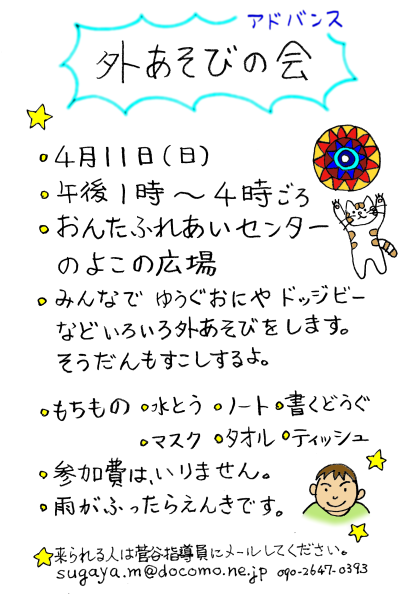 アドバンス
外あそびの会
4月11日(日)
午後1時〜4時ごろ
おんたふれあいセンター
のよこの広場
みんなで ゆうぐおにや ドッジビー
などいろいろ外あそびをします。
そうだんもすこしするよ。
もちもの ・水とう ・ノート ・書くどうぐ
・マスク ・タオル ・ティッシュ
参加費は、いりません。
雨がふったらえんきです。
来られる人は菅谷指導員にメールしてください。
sugaya.m@docomo.ne.jp 090-2647-0393